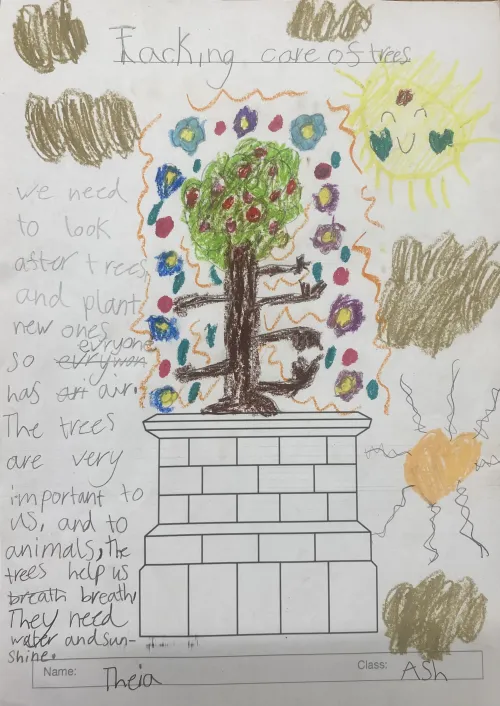 Tacking care of trees
we need
to look
after trees,
and plant
new ones
evryone
so evrywon
has art air.
The trees
are very
important to
us, and to
animals, The
trees help us
breath breath
They need
water and sun-
shine.
Name: Theia
Class: ASh